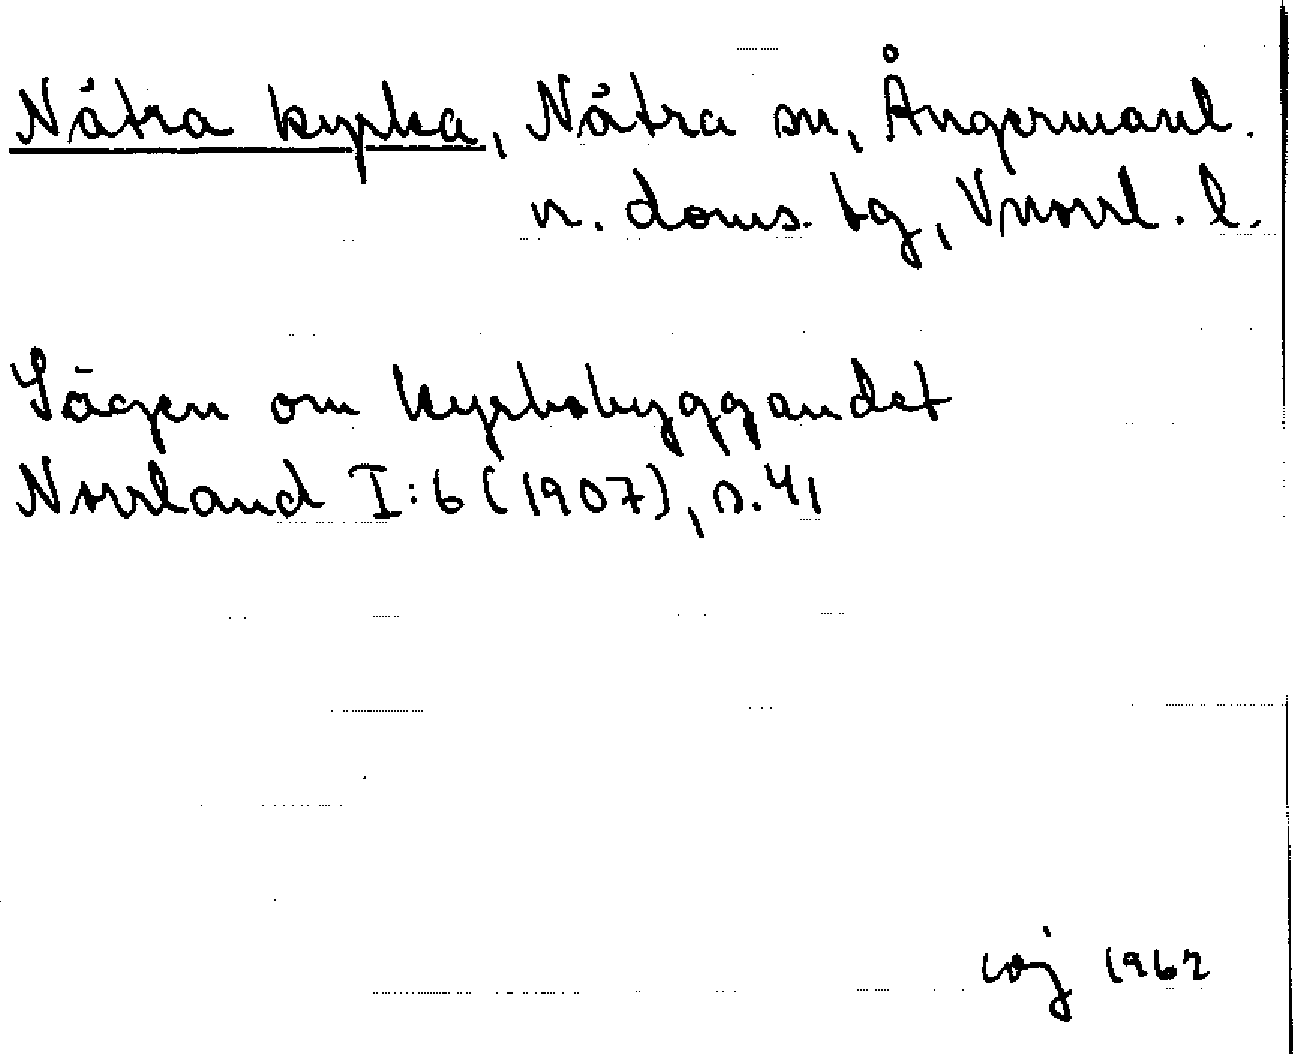 Nätra kyrka, Nätra sn, Ångermanl.
n. doms. tg, Vnorrl. l.
Sägen om kyrkobyggandet
Norrland I:6 (1907), s. 41
1962